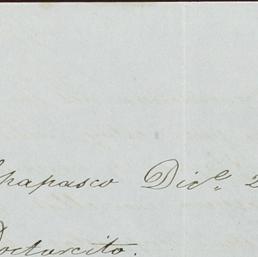 Chapasco Dic.e 2
Doctorcito.